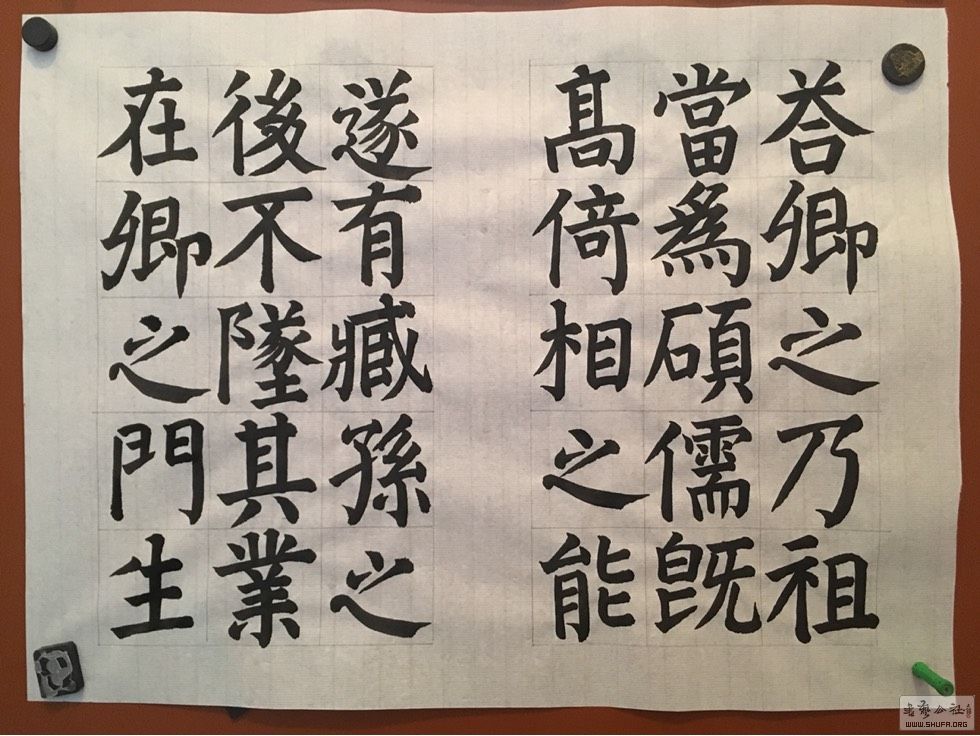 荅卿之乃祖
當為碩儒旣
髙倚相之能
遂有臧孫之
後不墜其業
在卿之門生
書藝公社
WWW.SHUFA.ORG